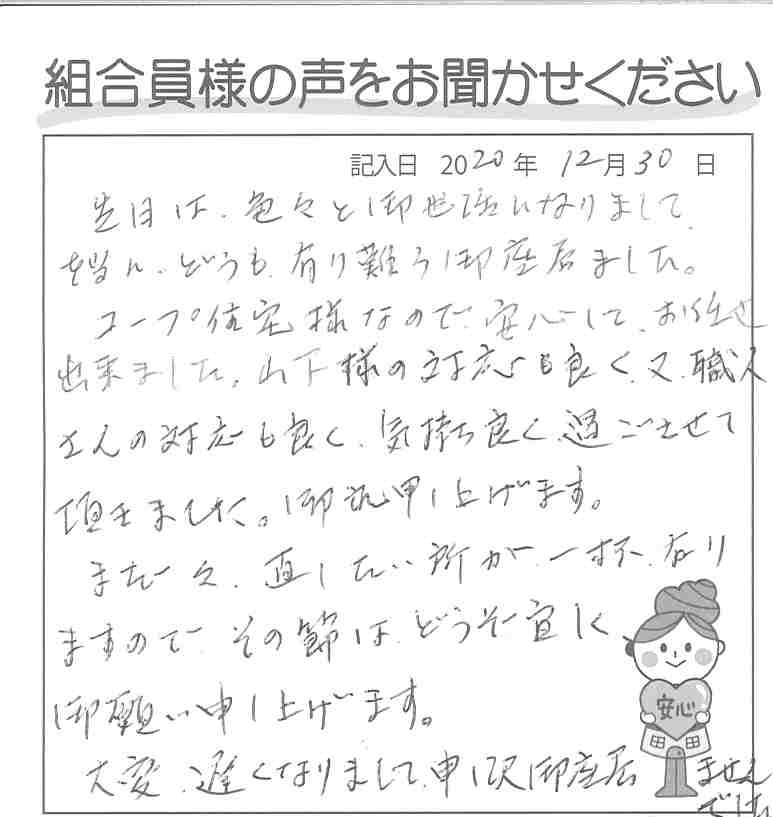 組合員様の声をお聞かせください
記入日 2020年 12月30日
先日は、色々と御世話になりまして、
どうも、有り難う御座居ました。
コープ住宅様なので、安心して、お任せ
出来ました。山下様の対応も良く、又、職人
さんの対応も良く、気持ち良く、過ごさせて
頂きました。御礼申し上げます。
まだ々、直したい所が、一杯、有り
ますので、その節は、どうぞ宜しく
御願い申し上げます。
安心
大変、遅くなりまして、申し訳御座居ません
でした